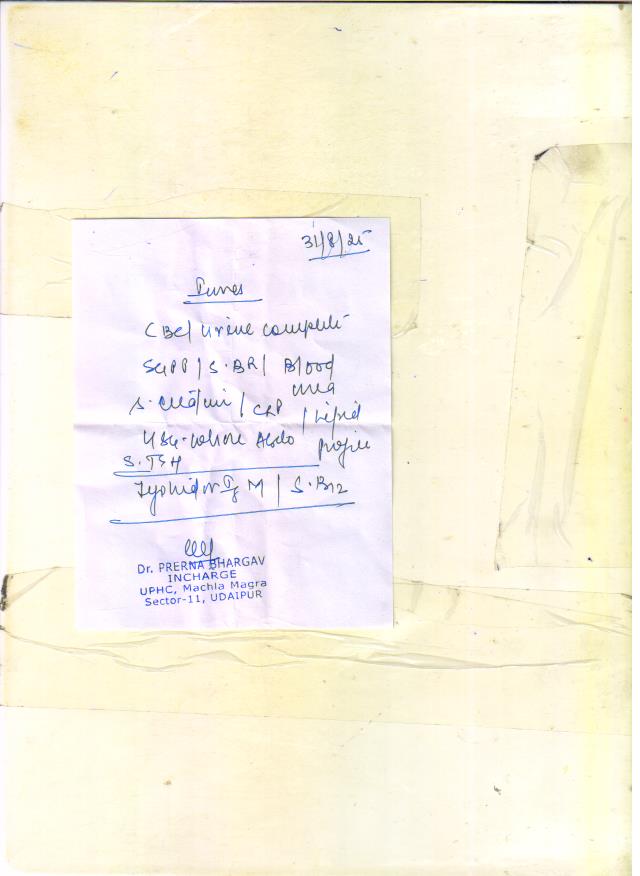 31/8/25
CBC/ Urine complete
SGPT / S. BR / Blood
urea
S. Creatini / CRP / Lipid
USG. whole Abdo profile
S. TSH
Typhidot Ig M / S. B12
Dr. PRERNA BHARGAV
INCHARGE
UPHC, Machla Magra
Sector-11, UDAIPUR